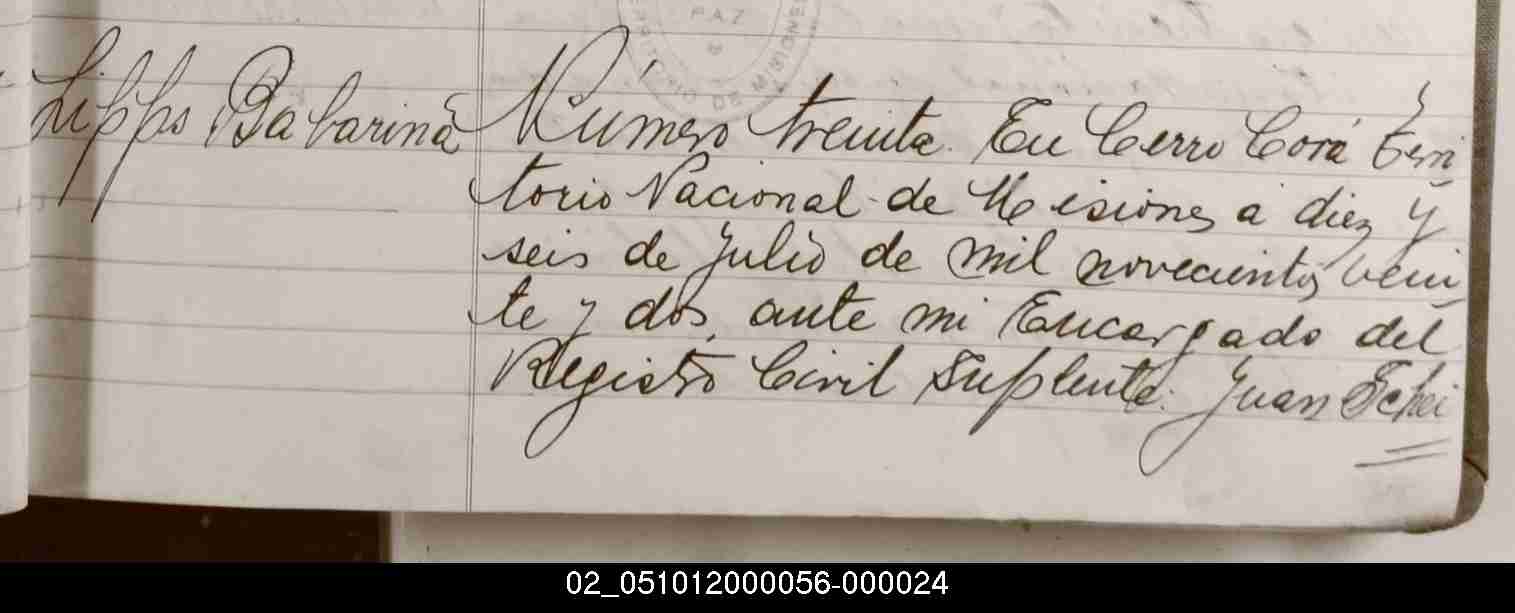 PAZ
TERRITORIO DE MISIONES
Lipps Babarina
Número treinta. En Cerro Corá Terri
torio Nacional de Misiones a diez y
seis de Julio de mil novecientos vein
te y dos, ante mi Encargado del
Registro Civil Suplente. Juan Schei
02_051012000056-000024